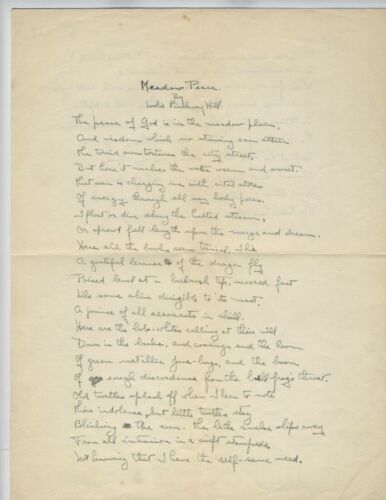 Meadow Peace
By
Leslie Pinckney Hill
The peace of God is in the meadow plain,
And wisdom which no striving can attain.
The torrid sun tortures the city street,
But here it makes the water warm and sweet.
That sun is charging me with stores
Of energy through all my body pores.
I float or dive along the stream,
Or sprawl full length upon the marge and dream.
Here all the books seem trivial. I lie
A grateful learner of the dragon fly
Poised level at a bulrush tip, moored fast
Like some slim dirigible to its mast,
A prince of all aeronauts in skill.
Here are the bob-whites calling at their will
Down in the brake, and and the boom
Of green metallic June-bugs, and the boom
Of rough discordance from the bull-frog's throat.
Old turtles splash off when I lean to note
Their indolence, but little turtles stay
Blinking The sun. The little snake slips away
From all intrusion in a swift stampede
Not knowing that I have the self-same need.